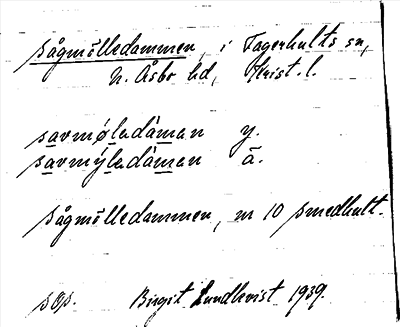 Sågmölledammen, i Fagerhults sn,
N. Åsbo hd, Krist. l.
savmøladàman y.
savmýladàman ä.
Sågmölledammen, nr 10 Smedhult.
Birgit Lundkvist 1939.